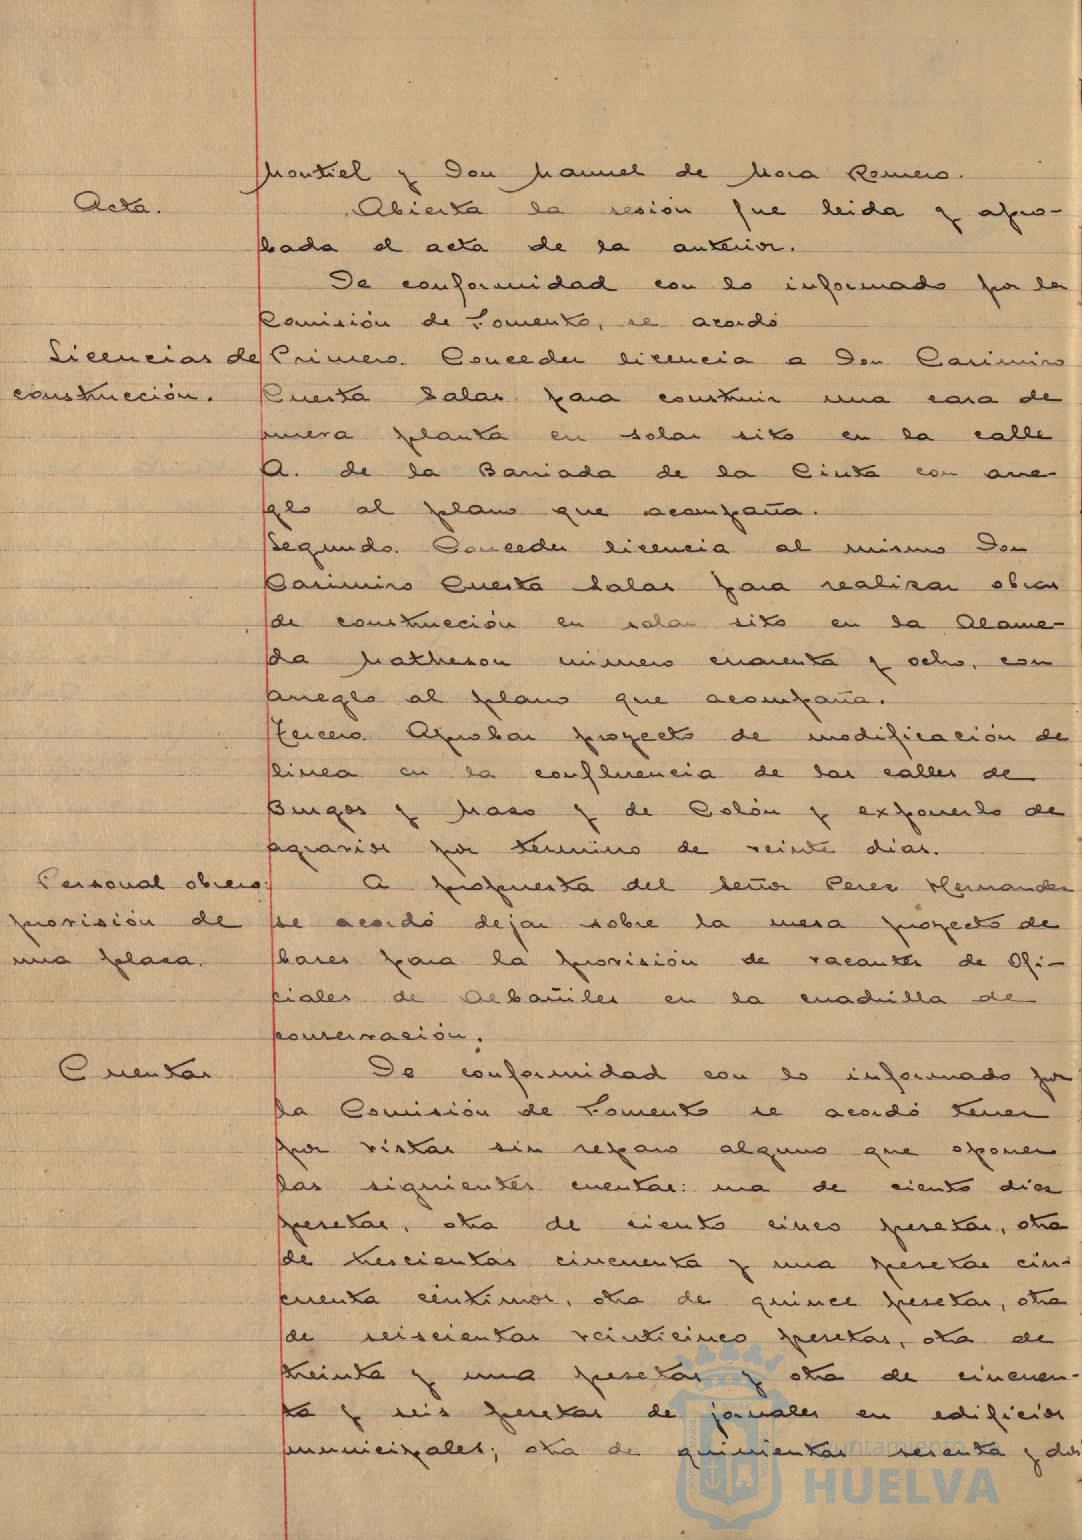 Montiel y Don Manuel de Mora Romero.
Acta.
Abierta la sesión fue leida y apro-
bada el acta de la anterior.
De conformidad con lo informado por la
Comisión de Fomento, se acordó
Licencias de
construcción.
Primero. Conceder licencia a Don Casimiro
Cuesta Salas para construir una casa de
nueva planta en solar sito en la calle
A. de la Barriada de la Cinta con arre-
glo al plano que acompaña.
Segundo. Conceder licencia al mismo Don
Casimiro Cuesta Salas para realizar obras
de construcción en solar sito en la Alame-
da Matheson número cuarenta y ocho, con
arreglo al plano que acompaña.
Tercero. Aprobar proyecto de modificación de
linea en la confluencia de las calles de
Burgos y Maso y de Colón y exponerlo de
agravios por término de veinte dias.
Personal obrero:
provisión de
una plaza.
A propuesta del Señor Perez Hernandez
se acordó dejar sobre la mesa proyecto de
bases para la provisión de vacantes de Ofi-
ciales de Albañiles en la cuadrilla de
conservación.
Cuentas
De conformidad con lo informado por
la Comisión de Fomento se acordó tener
por vistas sin reparo alguno que oponer
las siguientes cuentas: una de ciento diez
pesetas, otra de ciento cinco pesetas, otra
de trescientas cincuenta y una pesetas cin-
cuenta céntimos, otra de quince pesetas, otra
de seiscientas veinticinco pesetas, otra de
treinta y una pesetas y otra de cincuen-
ta y seis pesetas de jornales en edificios
municipales; otra de quinientas sesenta y dos
Ayuntamiento de
HUELVA